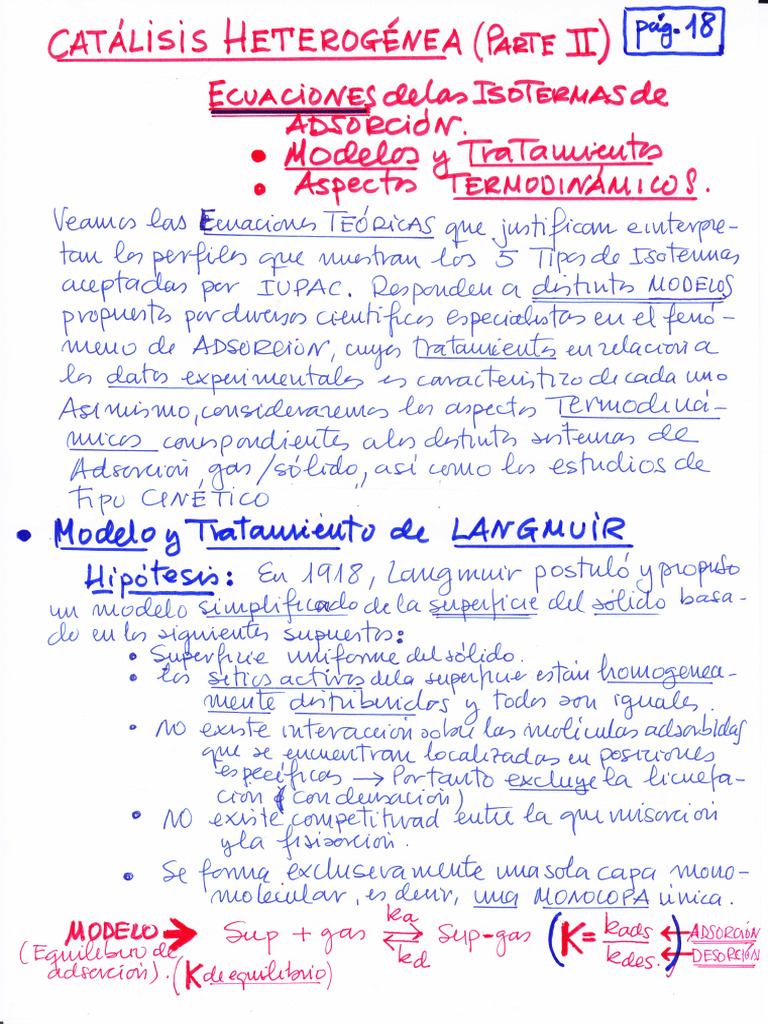 CATÁLISIS HETEROGÉNEA (PARTE II) pág. 18
ECUACIONES de las ISOTERMAS de
ADSORCIÓN.
• Modelos y Tratamientos
• Aspectos TERMODINÁMICOS.
Veamos las Ecuaciones TEÓRICAS que justifican e interpre-
tan los perfiles que muestran los 5 Tipos de Isotermas
aceptadas por IUPAC. Responden a distintos MODELOS
propuestos por diversos científicos especialistas en el fenó-
meno de ADSORCIÓN, cuyos tratamientos en relación a
los datos experimentales es característico de cada uno
Asimismo, consideraremos los aspectos TERMODINÁ-
micos correspondientes a los distintos sistemas de
Adsorción gas/sólido, así como los estudios de
Tipo CINÉTICO
• Modelo y Tratamiento de LANGMUIR
Hipótesis: En 1918, Langmuir postuló y propuso
un modelo simplificado de la superficie del sólido basa-
do en los siguientes supuestos:
• Superficie uniforme del sólido.
• Los sitios activos de la superficie están homogenea-
mente distribuidos y todos son iguales.
• NO existe interacción sobre las moléculas adsorbidas
que se encuentran localizadas en posiciones
específicas → Por tanto excluye la licuefa-
ción (condensación)
• NO existe competitividad entre la quimisorción
y la fisisorción.
• Se forma exclusivamente una sola capa mono-
molecular, es decir, una MONOCAPA única.
MODELO → Sup + gas ka ⇌ kd Sup-gas (K = kads / kdes.) ← ADSORCIÓN ← DESORCIÓN
(Equilibrio de
adsorción). (K de equilibrio)